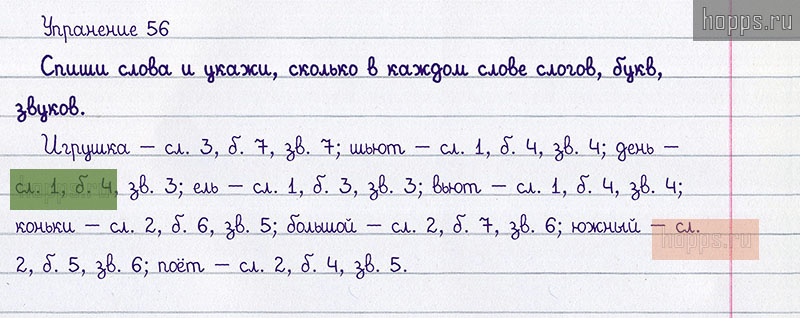 hopps.ru
Упражнение 56
Спиши слова и укажи, сколько в каждом слове слогов, букв,
звуков.
Игрушка – сл. 3, б. 7, зв. 7; шьют – сл. 1, б. 4, зв. 4; день –
сл. 1, б. 4, зв. 3; ель – сл. 1, б. 3, зв. 3; вьют – сл. 1, б. 4, зв. 4;
коньки – сл. 2, б. 6, зв. 5; большой – сл. 2, б. 7, зв. 6; южный – сл.
hopps.ru
2, б. 5, зв. 6; поёт – сл. 2, б. 4, зв. 5.